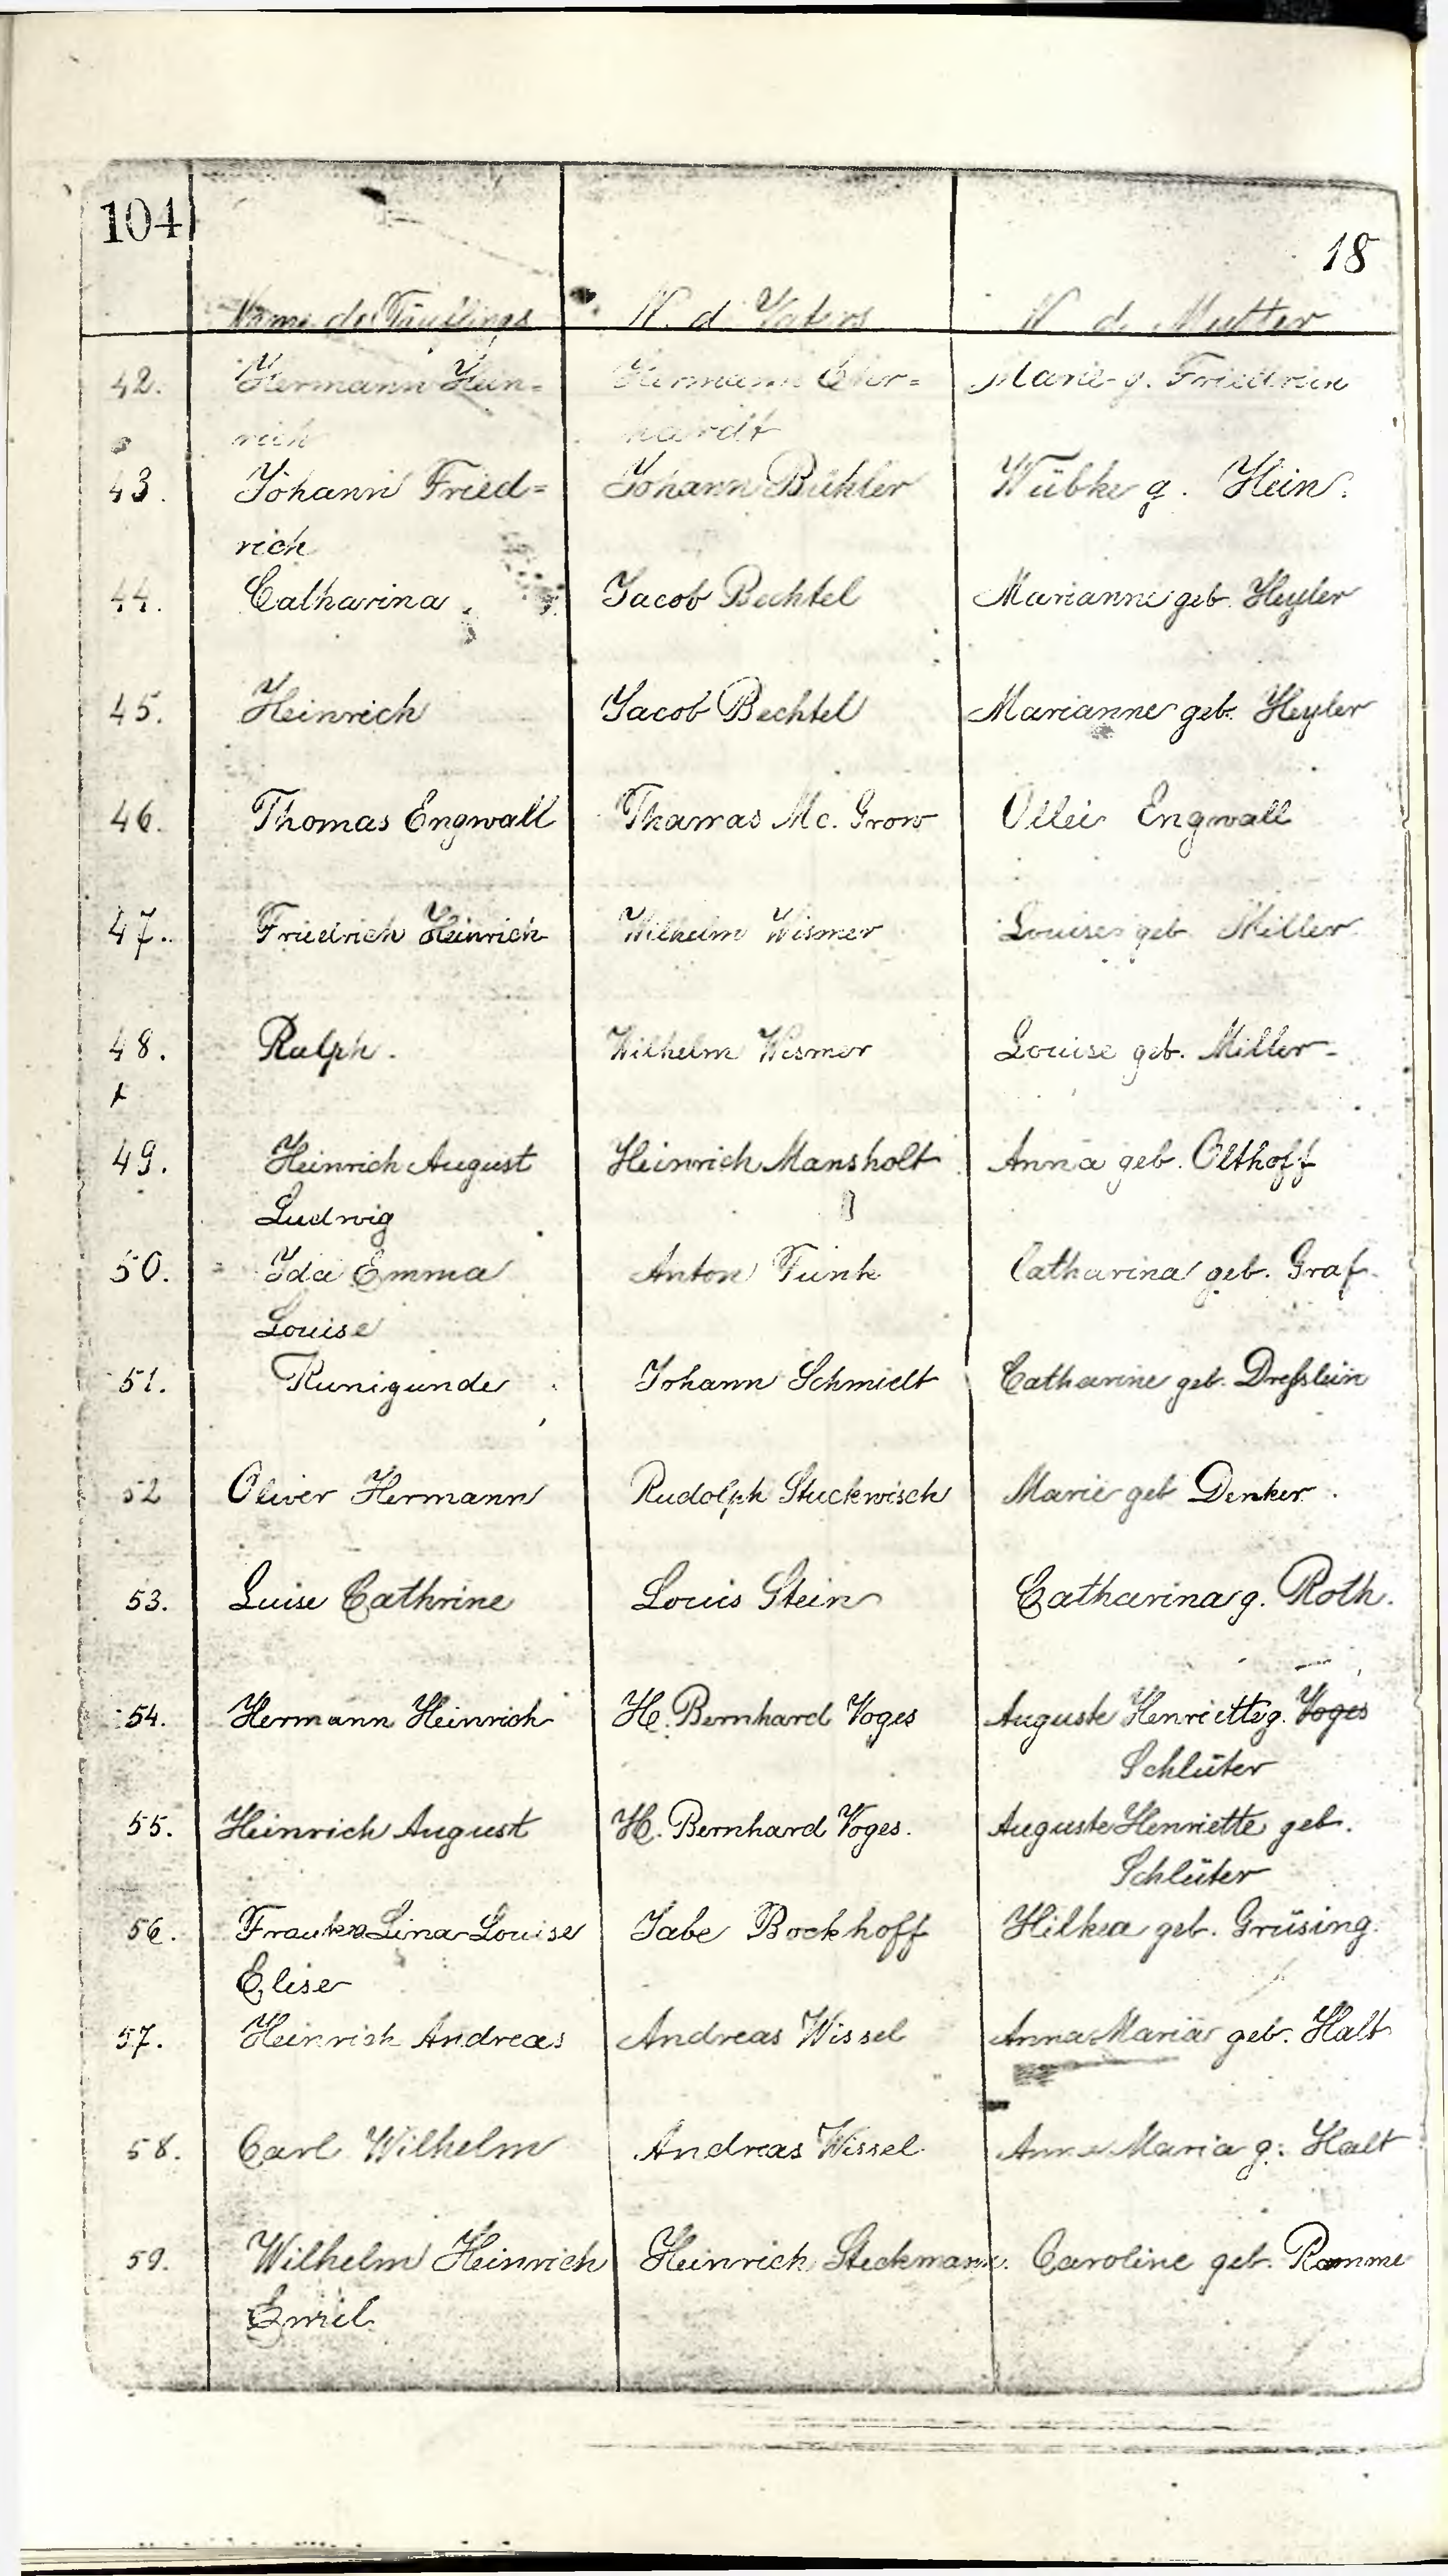 104
18
Name des Täuflings N. d. Vaters N. d. Mutter
42. Hermann Hein= Hermann Ehr= Marie g. Friedrich
rich hardt
43. Johann Fried= Johann Bühler Wübke g. Hein.
rich
44. Catharina Jacob Bechtel Marianne geb. Heyler
45. Heinrich Jacob Bechtel Marianne geb. Heyler
46. Thomas Engwall Thomas Mc. Grow Engwall
47. Friedrich Heinrich Wilhelm Wismer Louise geb. Miller
48. Ralph. Wilhelm Wismer Louise geb. Miller
49. Heinrich August Heinrich Mansholt Anna geb. Olthoff
Ludwig
50. Ida Emma Anton Funk Catharina geb. Graf.
Louise
51. Kunigunde Johann Schmidt Catharine geb. Dreßlein
52 Oliver Hermann Rudolph Stuckwisch Marie geb Denker.
53. Luise Cathrine Louis Stein Catharina g. Roth.
54. Hermann Heinrich H. Bernhard Voges Auguste Henriette g. Voges
Schlüter
55. Heinrich August H. Bernhard Voges. Auguste Henriette geb.
Schlüter
56. Frauke Lina Louise Jabe Bockhoff Hilkea geb. Grüsing.
Elise
57. Heinrich Andreas Andreas Wissel Anna Maria geb. Halt
58. Carl Wilhelm Andreas Wissel Anna Maria g. Halt
59. Wilhelm Heinrich Heinrich Steckmann. Caroline geb. Ramme
Emil